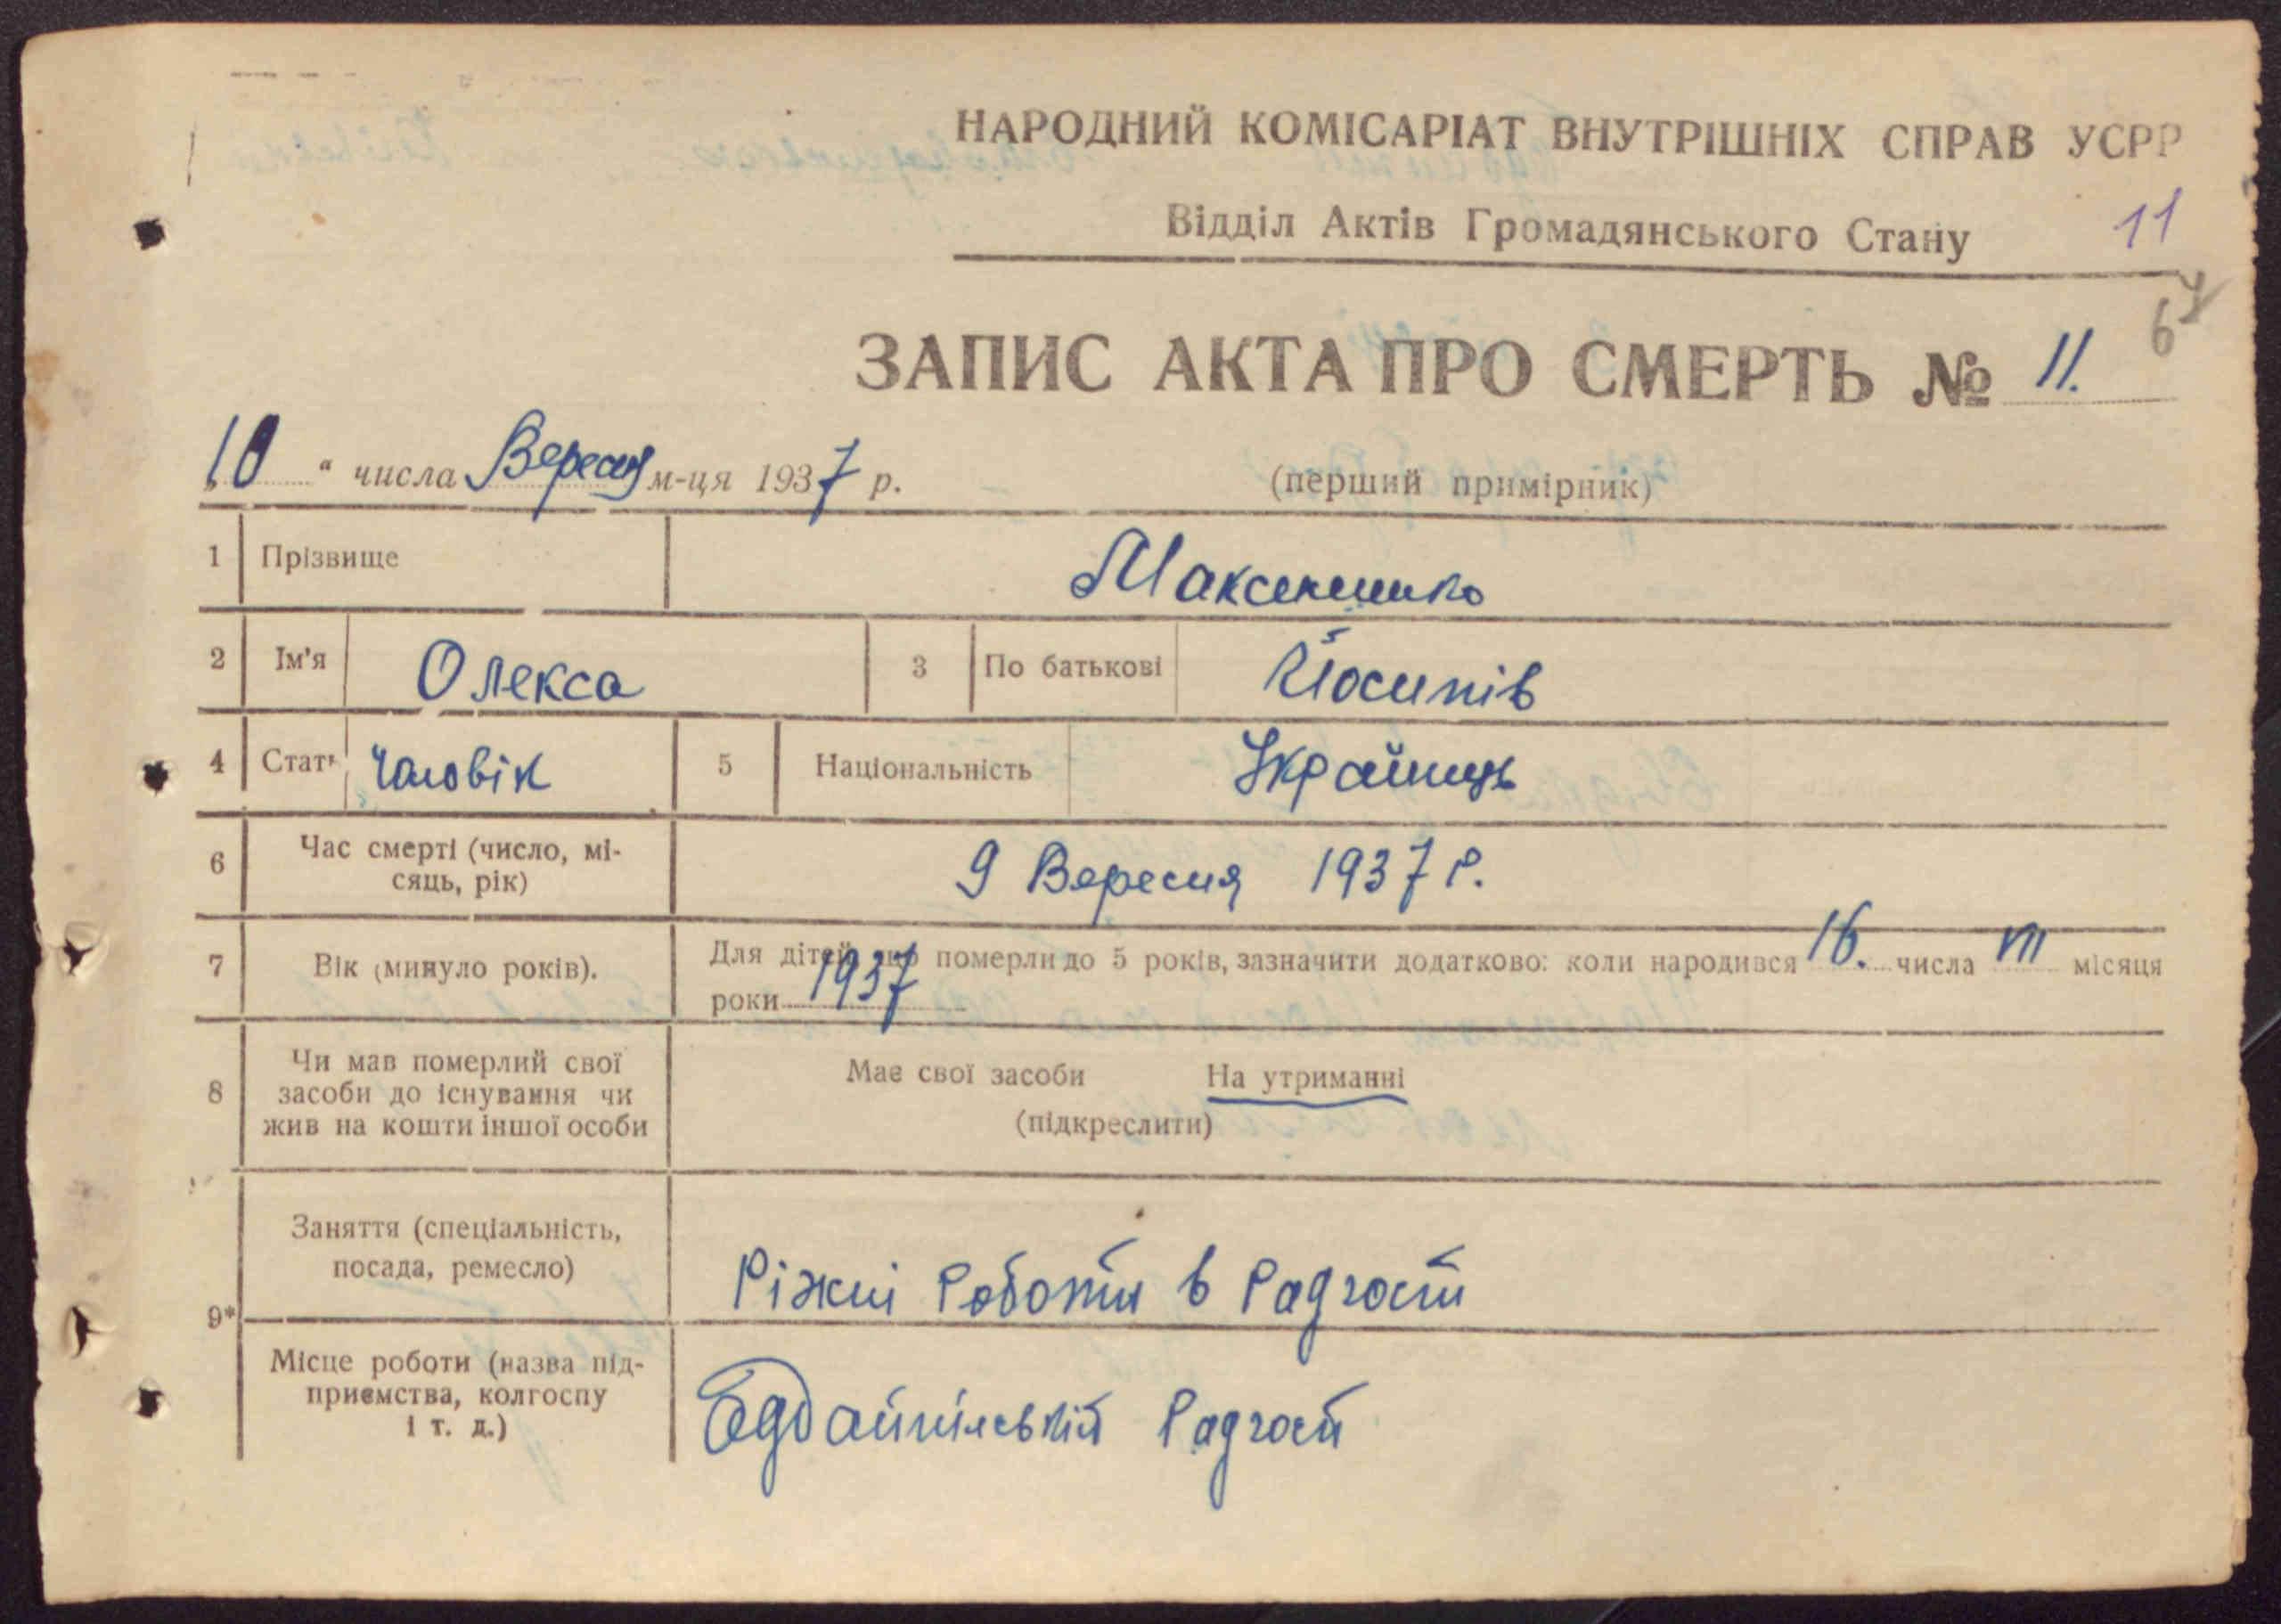 НАРОДНИЙ КОМІСАРІАТ ВНУТРІШНІХ СПРАВ УСРР
Відділ Актів Громадянського Стану 11
67
ЗАПИС АКТА ПРО СМЕРТЬ № 11.
„10“ числа Вересня м-ця 1937 р. (перший примірник)
1 Прізвище Максименко
2 Ім'я Олекса 3 По батькові Йосипів
4 Стать Чоловік 5 Національність Українць
6 Час смерті (число, мі-
сяць, рік) 9 Вересня 1937 р.
7 Вік (минуло років). Для дітей, що померли до 5 років, зазначити додатково: коли народився 16. числа VII місяця
роки 1937
8 Чи мав померлий свої
засоби до існування чи
жив на кошти іншої особи
Має свої засоби На утриманні
(підкреслити)
9* Заняття (спеціальність,
посада, ремесло) Ріжні роботи в Радгоспі
Місце роботи (назва під-
приємства, колгоспу
і т. д.) Радгосп